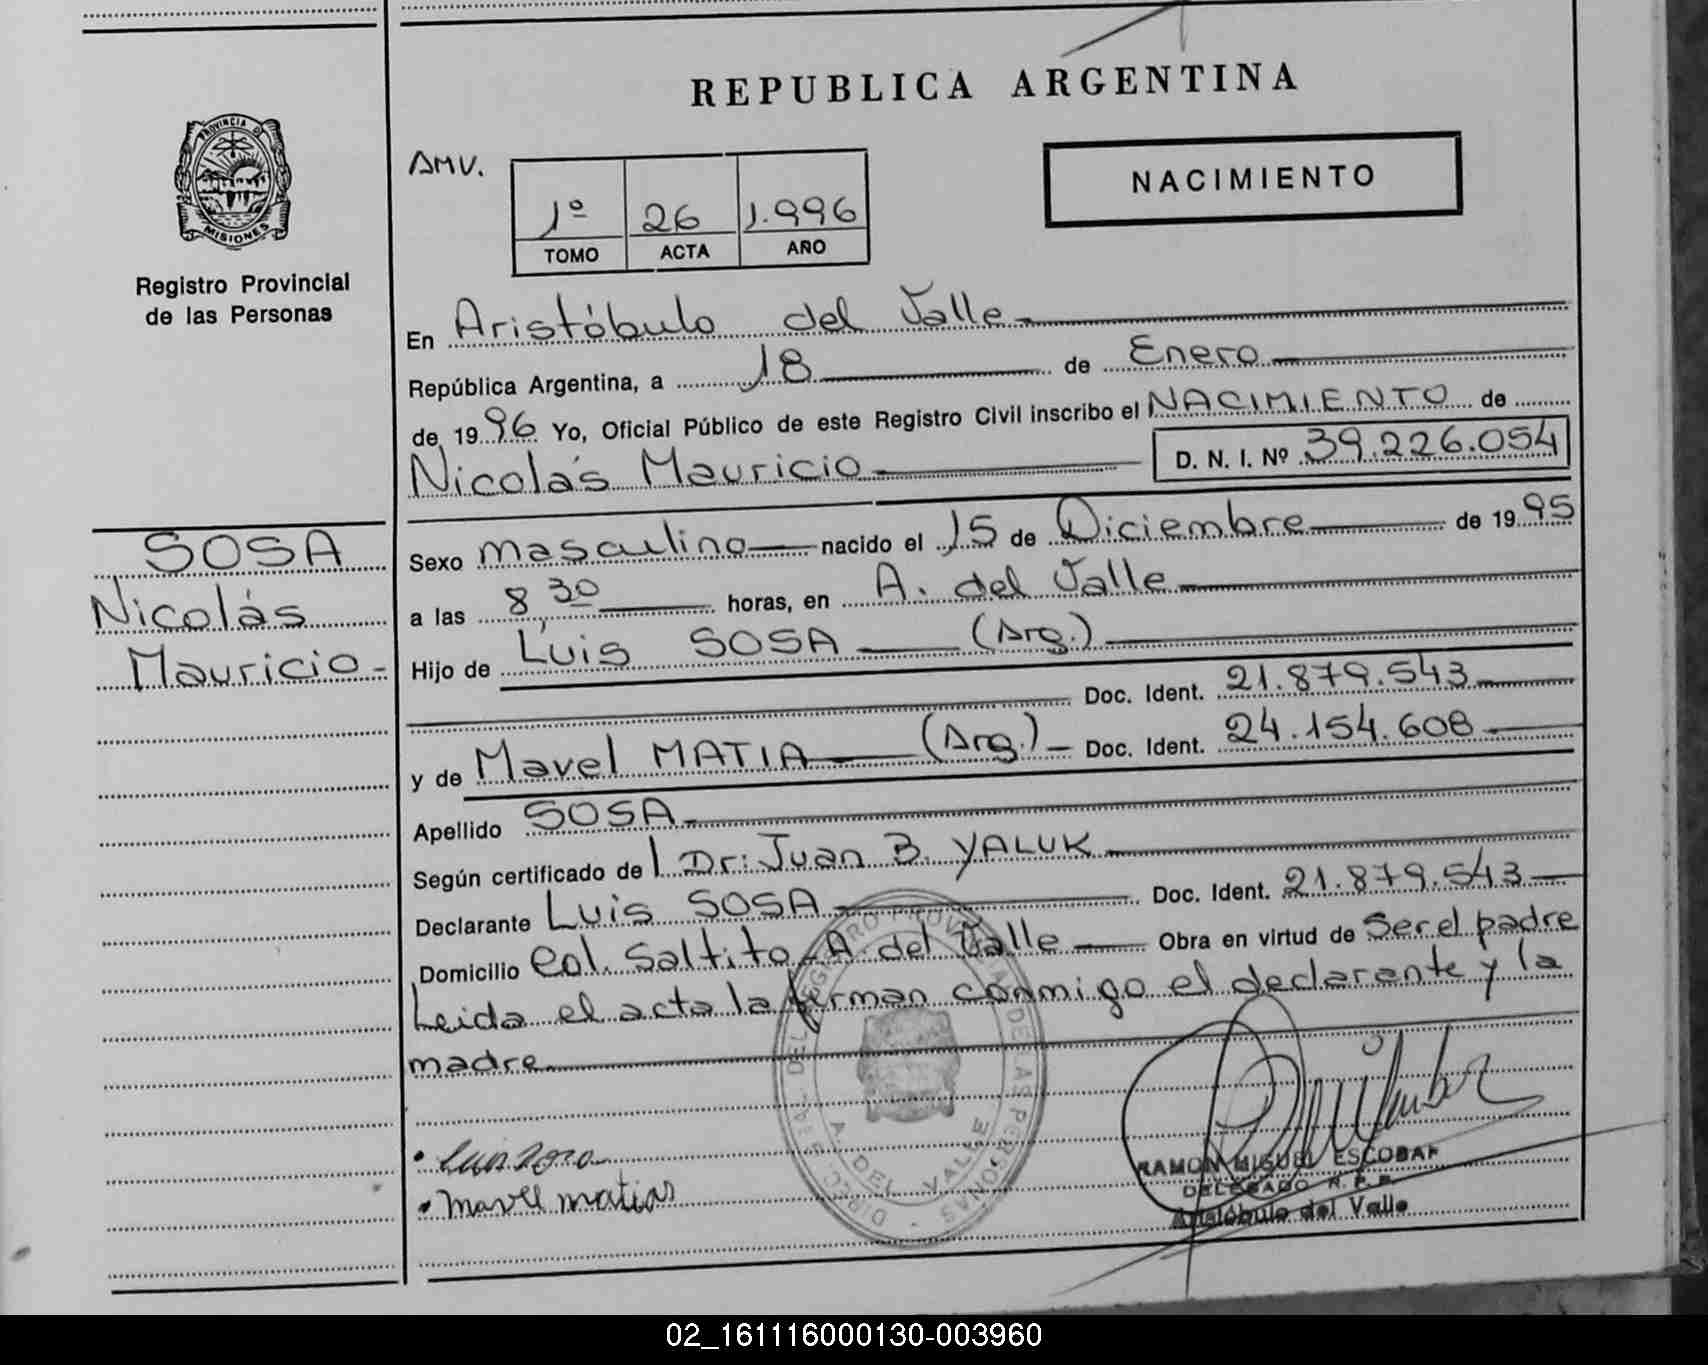 REPUBLICA ARGENTINA
PROVINCIA DE
MISIONES
Registro Provincial
de las Personas
AMV.
1º 26 1.996
TOMO ACTA AÑO
NACIMIENTO
En Aristóbulo del Valle
República Argentina, a 18 de Enero
de 1996 Yo, Oficial Público de este Registro Civil inscribo el NACIMIENTO de
Nicolás Mauricio D. N. I. Nº 39.226.054
SOSA
Nicolás
Mauricio
Sexo masculino nacido el 15 de Diciembre de 1995
a las 8 30 horas, en A. del Valle
Hijo de Luis SOSA (Arg.)
Doc. Ident. 21.879.543
y de Mavel MATIA (Arg.) Doc. Ident. 24.154.608
Apellido SOSA
Según certificado de Dr: Juan B. YALUK
Declarante Luis SOSA Doc. Ident. 21.879.543
Domicilio Col. Saltito A. del Valle Obra en virtud de Ser el padre
Leida el acta la firman conmigo el declarante y la
madre
Luis Sosa
Mavel matias
A. DEL VALLE
RAMON MIGUEL ESCOBAR
DELEGADO R. P. P.
Aristóbulo del Valle
02_161116000130-003960